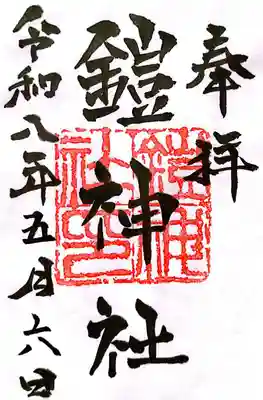 奉拝
鎧神社
令和八年五月六日
鎧神社之印